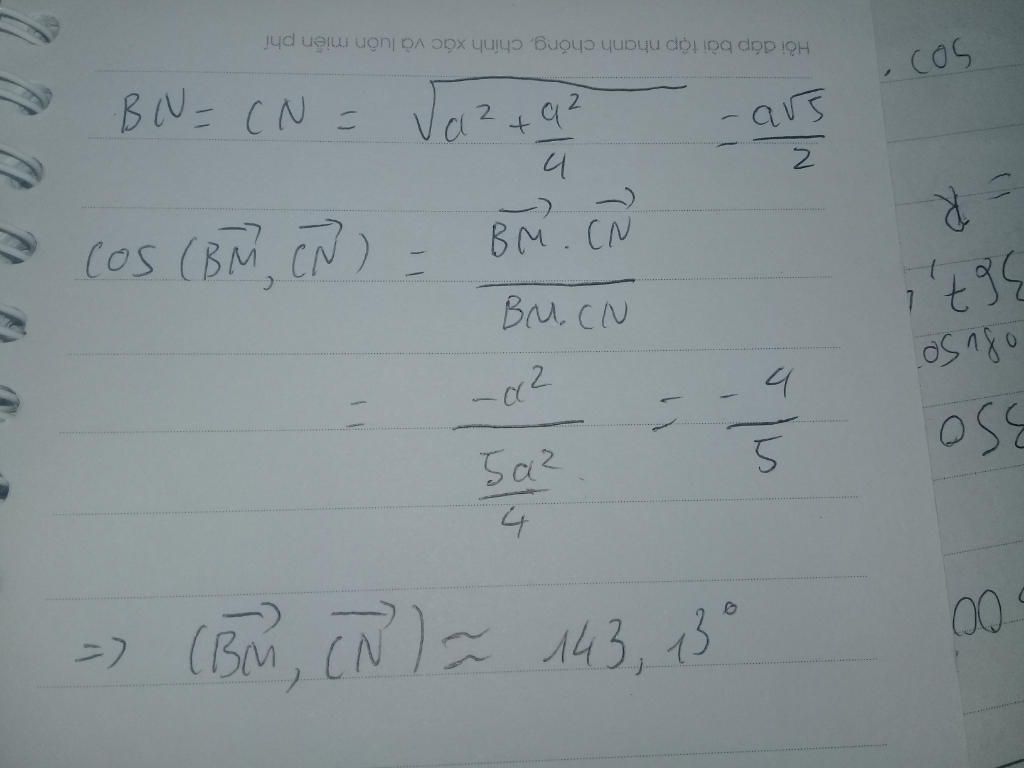 Hỏi đáp bài tập nhanh chóng, chính xác và luôn miễn phí
BN = CN = √(a² + a²/4) = a√5/2
cos (BM→, CN→) = (BM→ . CN→)/(BM . CN)
= -a²/(5a²/4) = -4/5
=> (BM→, CN→) ≈ 143,13°
. cos
= R
350